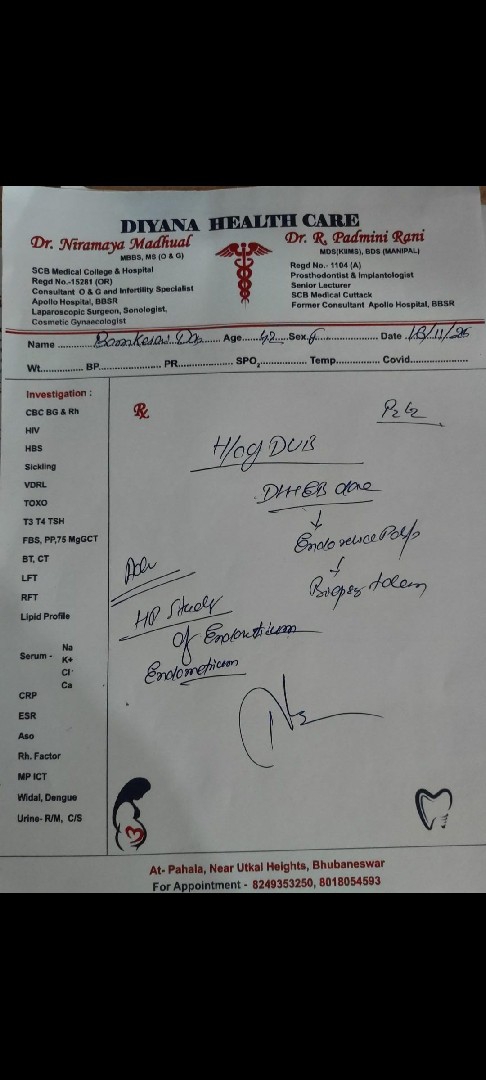 DIYANA HEALTH CARE
Dr. Niramaya Madhual
MBBS, MS (O & G)
SCB Medical College & Hospital
Regd No.-15281 (OR)
Consultant O & G and Infertility Specialist
Apollo Hospital, BBSR
Laparoscopic Surgeon, Sonologist,
Cosmetic Gynaecologist
Dr. R. Padmini Rani
MDS(KIIMS), BDS (MANIPAL)
Regd No.- 1104 (A)
Prosthodontist & Implantologist
Senior Lecturer
SCB Medical Cuttack
Former Consultant Apollo Hospital, BBSR
Name Das Age 42 Sex F Date
Wt. BP PR SPO2 Temp Covid
Investigation :
CBC BG & Rh
HIV
HBS
Sickling
VDRL
TOXO
T3 T4 TSH
FBS, PP,75 MgGCT
BT, CT
LFT
RFT
Lipid Profile
Serum - Na
K+
Cl-
Ca
CRP
ESR
Aso
Rh. Factor
MP ICT
Widal, Dengue
Urine- R/M, C/S
Rx
P2L2
H/o DUB
done
↓
↓
Biopsy taken
Adv
HP Study
of Endometrium
Endometrium
At- Pahala, Near Utkal Heights, Bhubaneswar
For Appointment - 8249353250, 8018054593